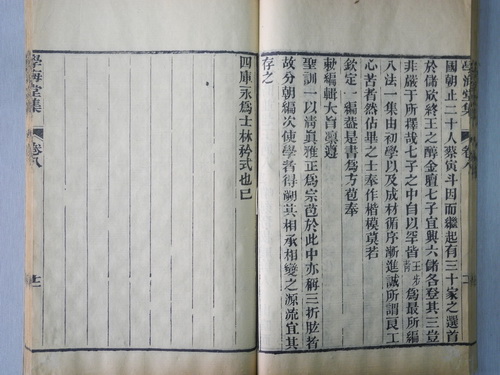 國朝止二十人蔡寅斗因而繼起有三十家之選首
於儲欣終王之醇金壇七子宜興六儲各登其三豈
非嚴于所擇哉七子之中自以罕皆王步青爲最所編
八法一集由初學以及成材循序漸進誠所謂良工
心苦者然佔畢之士奉作楷模莫若
欽定一編葢是書爲方苞奉
勅編輯大旨稟遵
聖訓一以清眞雅正爲宗苞於此中亦稱三折肱者
故分朝編次使學者得溯其相承相變之源流宜其
存之
學海堂集 卷八 十一
四庫永爲士林矜式也已
學海堂集 卷八 十二